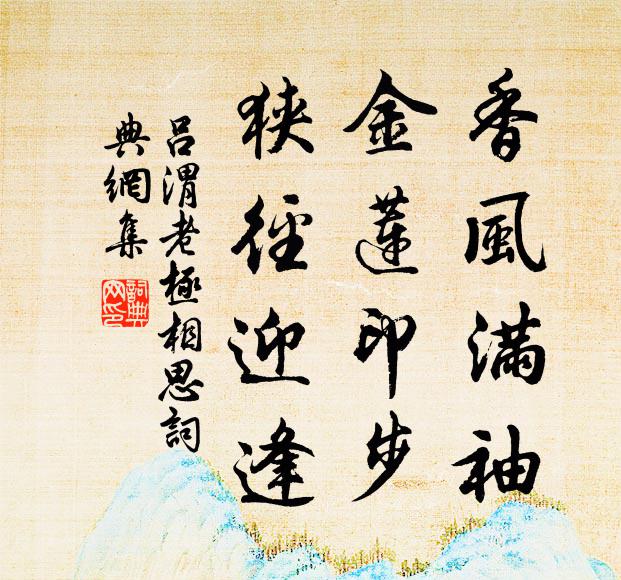 香風滿袖
金蓮印步
狹徑迎逢
呂渭老極相思詞
典網集
詞典網印